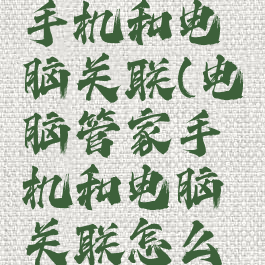 手机和电
脑关联(电
脑管家手
机和电脑
关联怎么